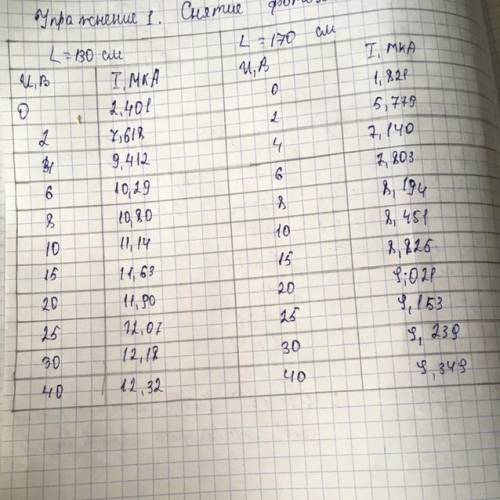 Упражнение 1. Снятие
L = 130 см L = 170 см
U, В I, мкА U, В I, мкА
0 2,401 0 1,821
2 7,618 2 5,779
4 9,412 4 7,140
6 10,29 6 7,803
8 10,80 8 8,194
10 11,14 10 8,451
15 11,63 15 8,826
20 11,90 20 9,021
25 12,07 25 9,153
30 12,18 30 9,239
40 12,32 40 9,349